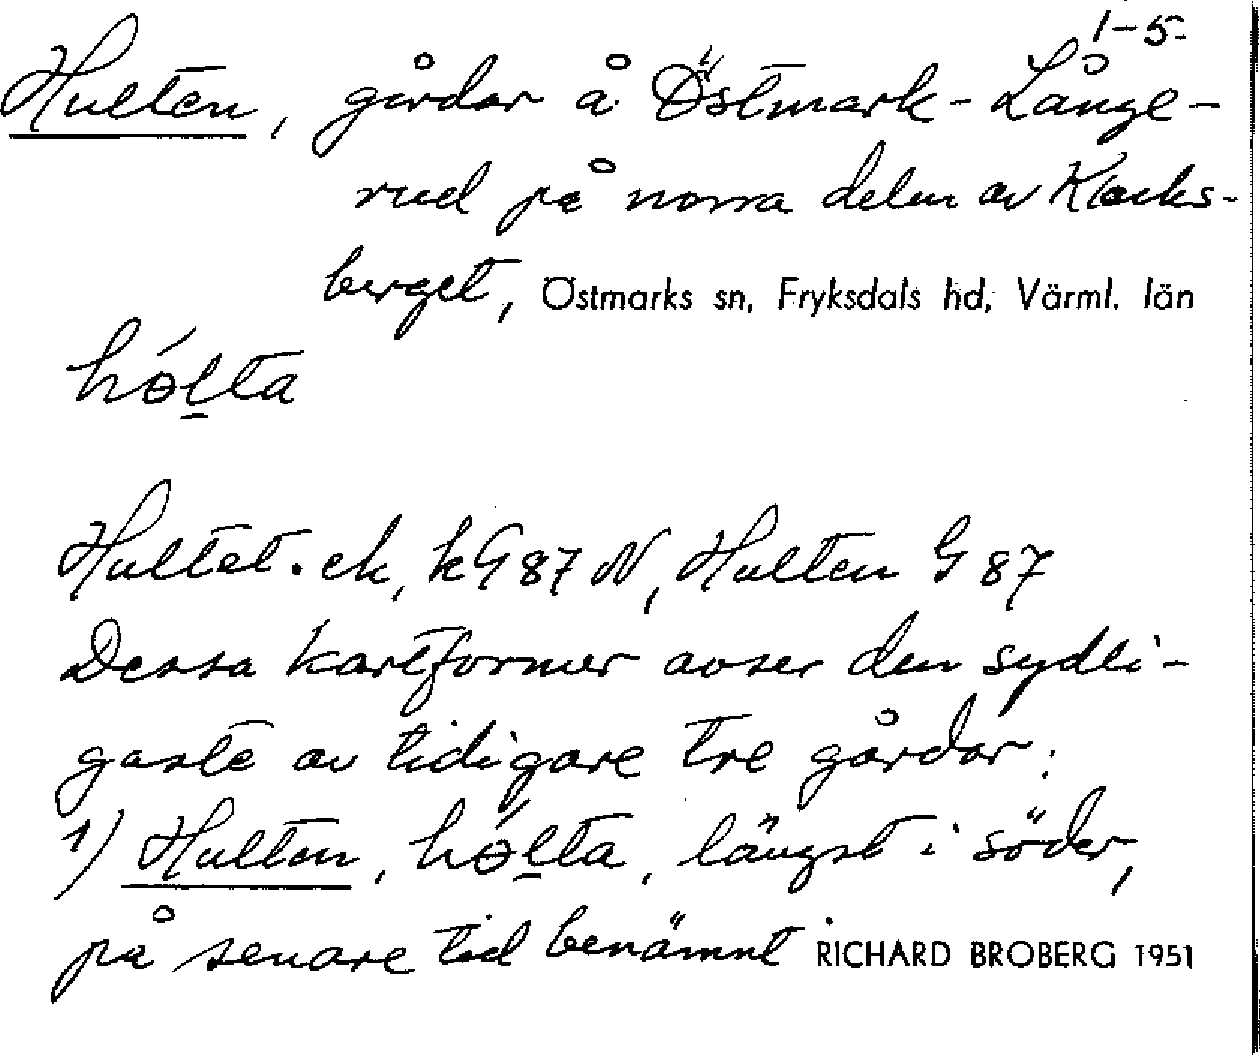 1-5.
Hulten, gårdar å Östmark-Långe-
rud på norra delen av Klacks-
berget, Östmarks sn, Fryksdals hd, Värml. län
hó̵l̲ta
Hultet. ek, kG 87 N, Hulten G 87
Dessa kartformer avser den sydli-
gaste av tidigare tre gårdar:
1) Hulten, hó̵l̲ta, längst i söder,
på senare tid benämnt RICHARD BROBERG 1951